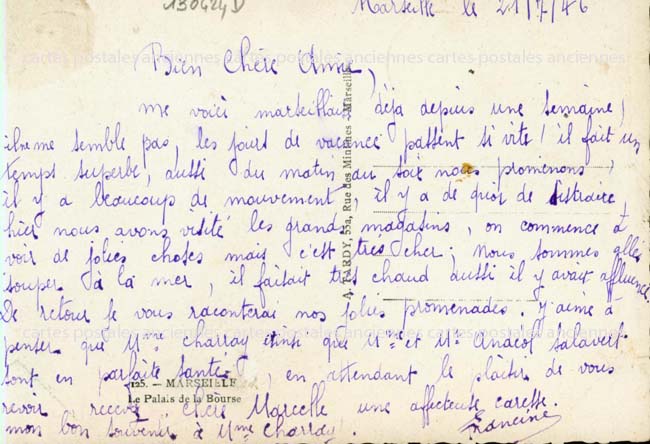 130424D
Marseille le 21/7/46
cartes postales anciennes cartes postales anciennes cartes postales anciennes
Bien Chère Amie,
me voici marseillaise déja depuis une semaine,
il ne me semble pas, les jours de vacance passent si vite! il fait un
temps superbe, aussi du matin au soir nous nous promenons,
il y a beaucoup de mouvement, il y a de quoi se distraire,
hier nous avons visité les grands magasins, on commence à
voir de jolies choses mais c'est très cher; nous sommes allés
souper à la mer, il faisait très chaud aussi il y avait affluence
De retour je vous raconterai nos jolies promenades. J'aime à
penser que Mme Charray ainsi que Mme et Mr
sont en parfaite santé, en attendant le plaisir de vous
revoir recevez chère Marcelle une affectueuse caresse.
mon bon souvenir à Mme Charray.
Francine
cartes postales anciennes cartes postales anciennes cartes postales anciennes
A. TARDY, 55a, Rue des Minimes - Marseille
125. - MARSEILLE
Le Palais de la Bourse